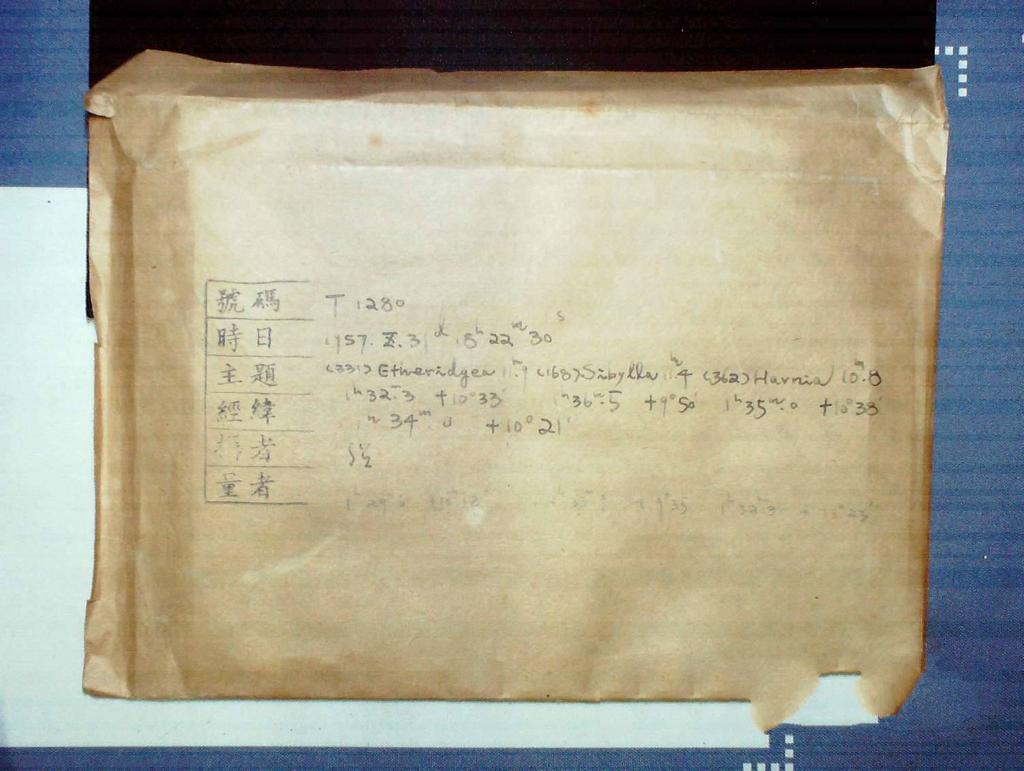 號碼 T 1280
時日 1957. X. 31ᵈ 15ʰ 22ᵐ 30ˢ
主題 (331) Etheridgea 11ᵐ.9 (168) Sibylla 11ᵐ.4 (362) Havnia 10ᵐ.8
1ʰ32ᵐ.3 +10°33′ 1ʰ36ᵐ.5 +9°50′ 1ʰ35ᵐ.0 +10°33′
經緯 1ʰ 34ᵐ 0 +10° 21′
者
量者
+9°35′ 1ʰ32ᵐ.3